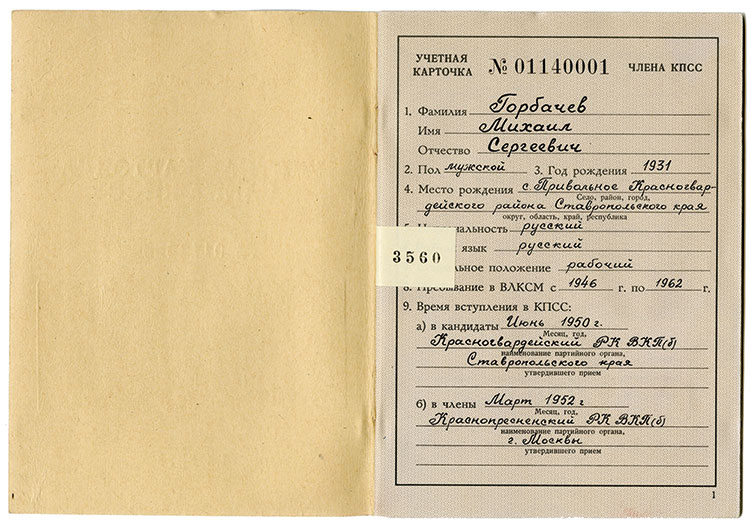 УЧЕТНАЯ КАРТОЧКА № 01140001 ЧЛЕНА КПСС
1. Фамилия Горбачев
Имя Михаил
Отчество Сергеевич
2. Пол мужской 3. Год рождения 1931
4. Место рождения с. Привольное Красногвар-
Село, район, город,
дейского района Ставропольского края
округ, область, край, республика
альность русский
язык русский
3560
льное положение рабочий
8. Пребывание в ВЛКСМ с 1946 г. по 1962 г.
9. Время вступления в КПСС:
а) в кандидаты Июнь 1950 г.
Месяц, год,
Красногвардейский РК ВКП(б)
наименование партийного органа,
Ставропольского края
утвердившего прием
б) в члены Март 1952 г
Месяц, год,
Краснопресненский РК ВКП(б)
наименование партийного органа,
г. Москвы
утвердившего прием
1